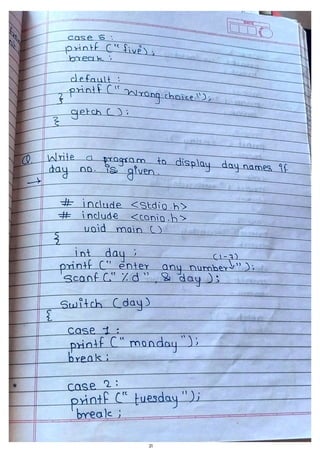 case 5 :
printf (" five");
break ;
default :
printf (" Wrong choice ");
}
getch ( );
}
Q. Write a program to display day names if
day no. is given.
→
# include <stdio.h>
# include <conio.h>
void main ( )
{
int day ;
(1-7)
printf (" enter any number ");
scanf (" %d " , & day );
switch (day)
{
case 1 :
printf (" monday ");
break ;
case 2 :
printf (" tuesday ");
break ;
21